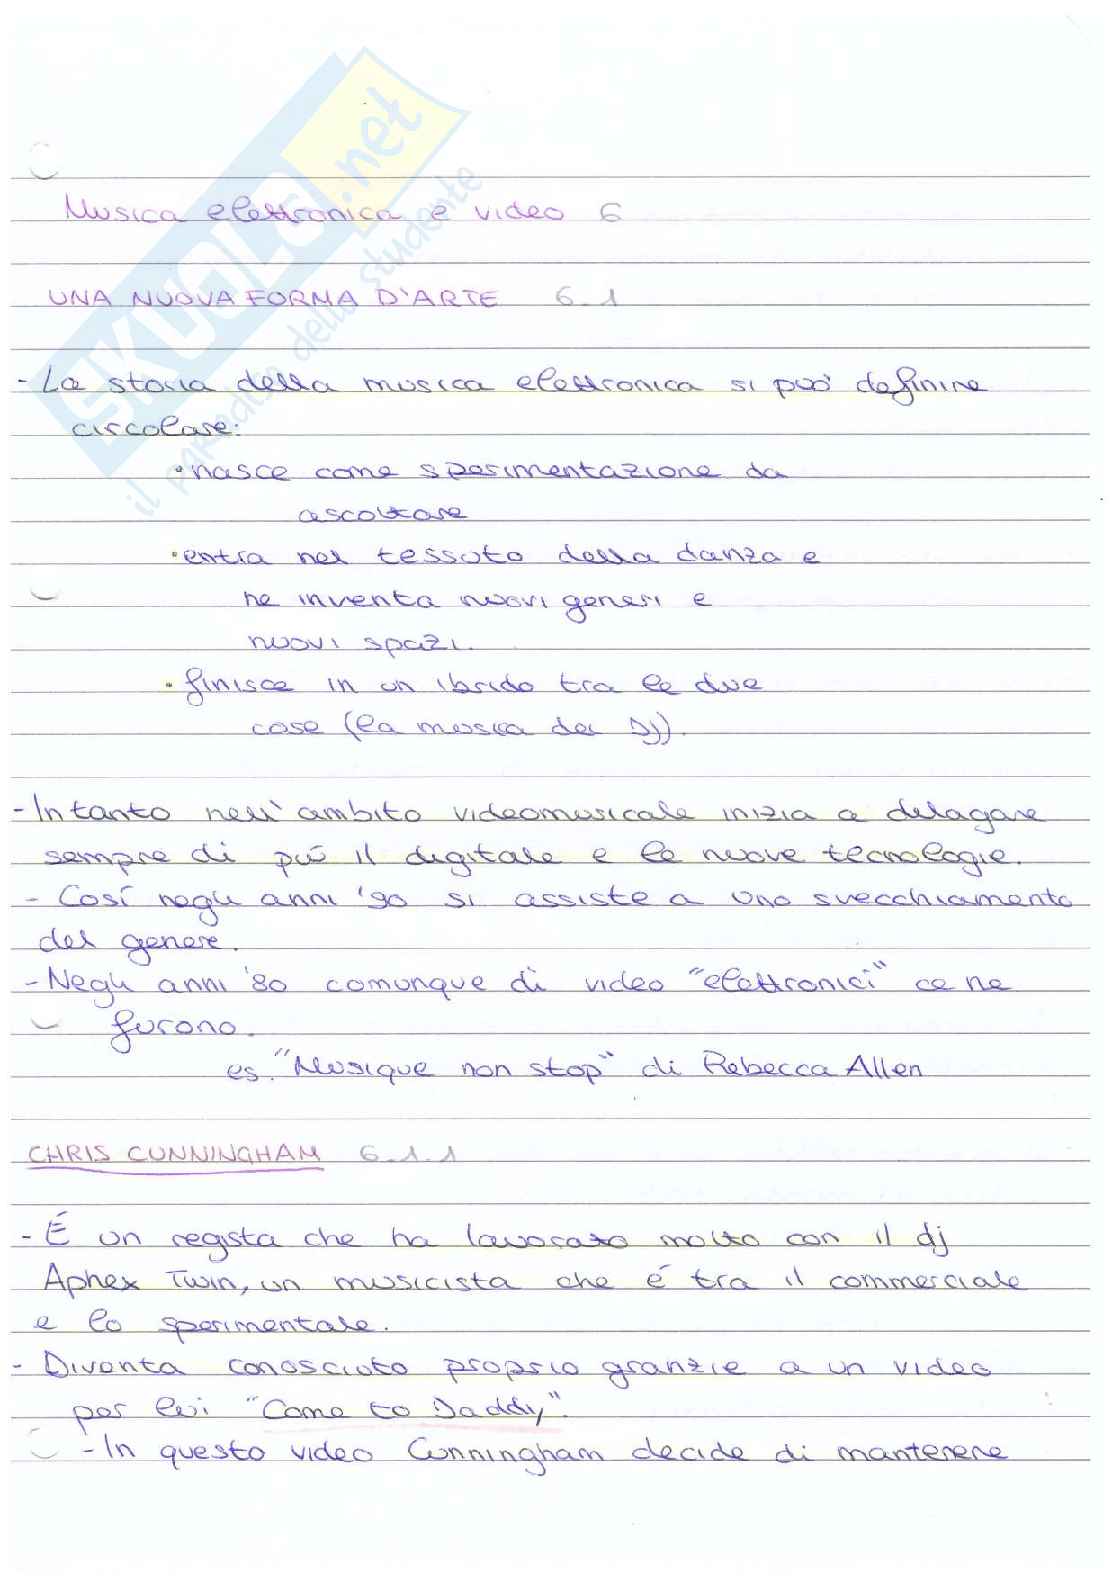 SKUOLA.net
il paradiso dello studente
Musica elettronica e video 6
UNA NUOVA FORMA D'ARTE 6.1
- La storia della musica elettronica si può definire
circolare:
• nasce come sperimentazione da
ascoltare
• entra nel tessuto della danza e
ne inventa nuovi generi e
nuovi spazi.
• finisce in un ibrido tra le due
cose (la musica dei DJ).
- Intanto nell'ambito videomusicale inizia a dilagare
sempre di più il digitale e le nuove tecnologie.
- Così negli anni '90 si assiste a uno svecchiamento
del genere.
- Negli anni '80 comunque di video "elettronici" ce ne
furono.
es. "Musique non stop" di Rebecca Allen
CHRIS CUNNINGHAM 6.1.1
- É un regista che ha lavorato molto con il dj
Aphex Twin, un musicista che é tra il commerciale
e lo sperimentale.
- Diventa conosciuto proprio granzie a un video
per lui "Come to Daddy".
- In questo video Cunningham decide di mantenere